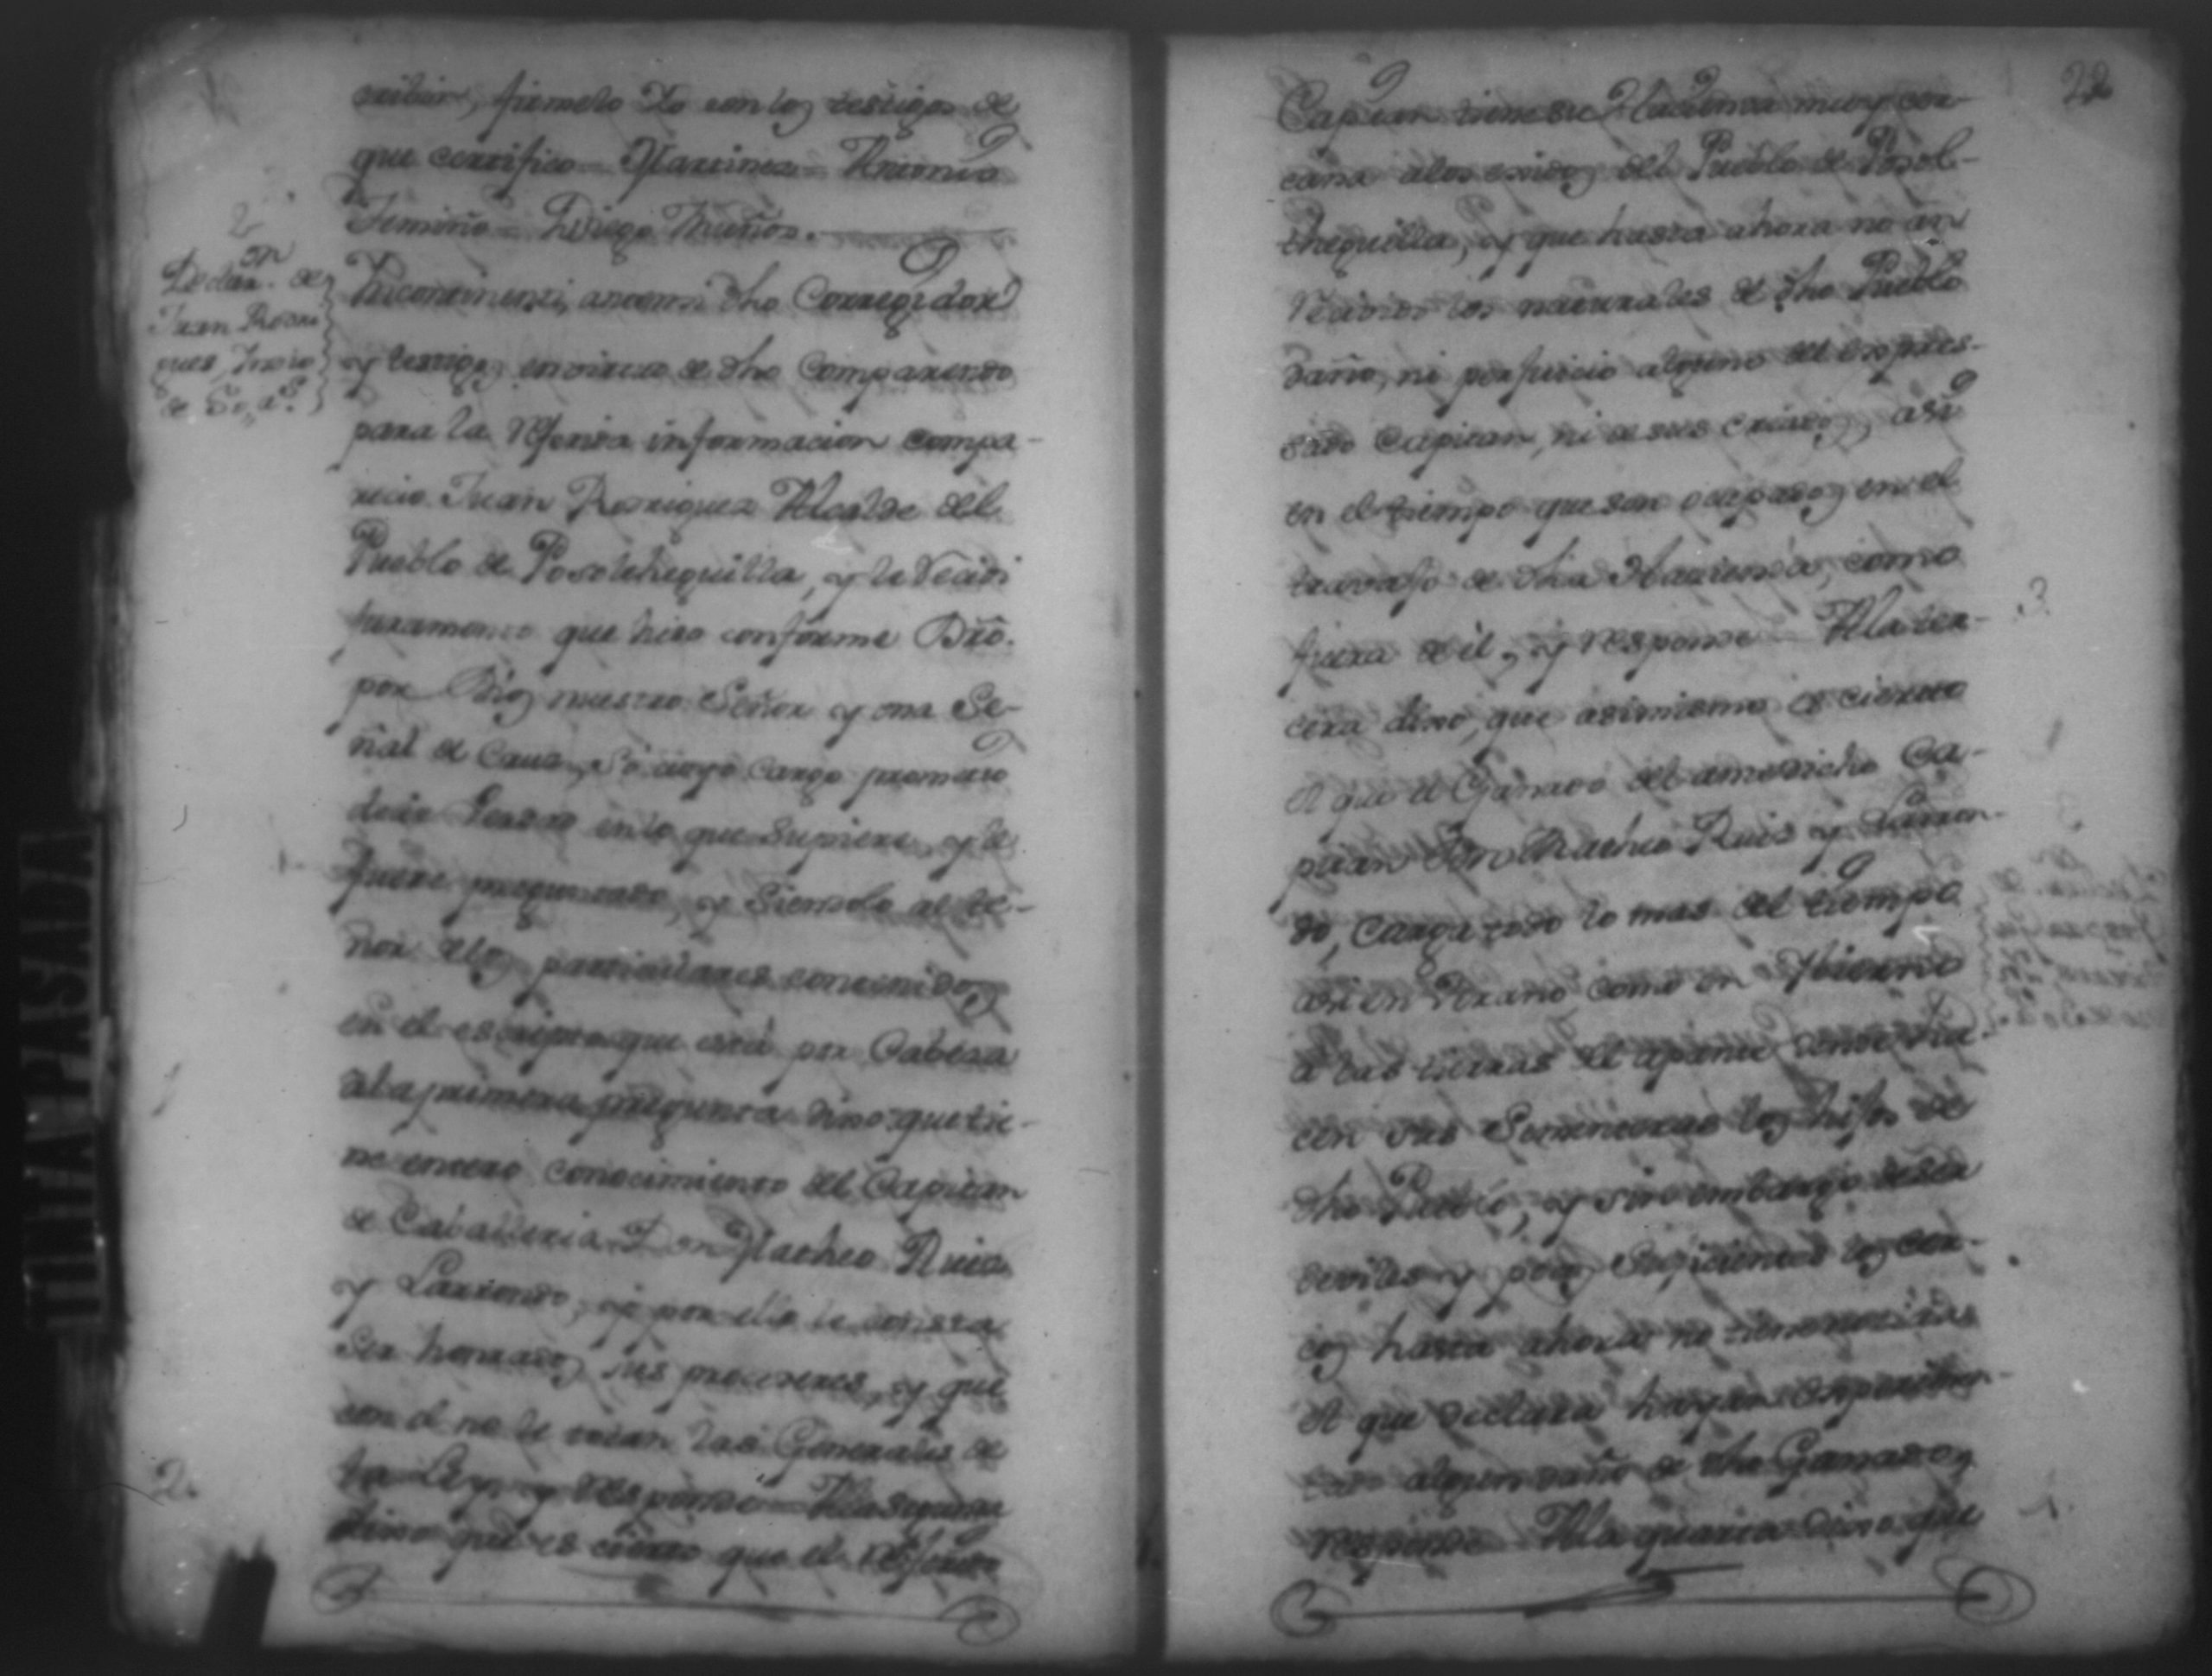 cribir, firmelo Yo con los testigos de
que certifico = Martinez = Antonio
Temiño = Diego Muños.
2
Declar.on de
Juan Rodri
gues, Indio
de 50, a.s
Yncontinenti, ante mi dho Corregidor
y testigos en virtud de dho Comparendo
para la referida informacion compa-
recio Juan Rodriguez Alcalde del
Pueblo de Posoltheguilla, y le recivi
juramento que hizo conforme Dro.
por Dios nuestro Señor y una Se-
ñal de Cruz, so cuyo cargo prometio
decir verdad en lo que Supiere, y le
fuere preguntado, y Siendolo al te-
nor de los particulares contenidos
en el escripto que está por Cabeza
a la primera pregunta dixo: que tie-
ne entero conocimiento del Capitan
de Cavalleria Don Matheo Ruiz
y Larrondo, y por ello le consta
ser honrados sus procederes, y que
con el no le tocan las Generales de
la Ley, y responde = A la segunda
2.
dixo que es cierto que el referido
22
Capitan tiene su Hacienda muy cer-
cana a los exidos del Pueblo de Posol-
theguilla, y que hasta ahora no an
recivido los naturales de dho Pueblo
daño, ni perjuicio alguno del expres-
sado Capitan, ni de sus criados, asi
en el tiempo que son ocupados en el
travajo de dha Hacienda, como
fuera de él, y responde = A la ter-
3.
cera dixo, que asimismo es cierto
el que el Ganado del antedicho Ca-
pitan Don Matheo Ruiz y Larron-
do, carga todo lo mas del tiempo
asi en Verano como en Ybierno
a las tierras del donde ha-
cen sus Sementeras los hijos de
dho Pueblo, y sin embargo de ser
deviles y poco suficientes los cer-
cos hasta ahora no tiene noticias
el que declara hayan experimen-
tado algun daño de dho Ganado, y
responde = A la quarta dixo: que